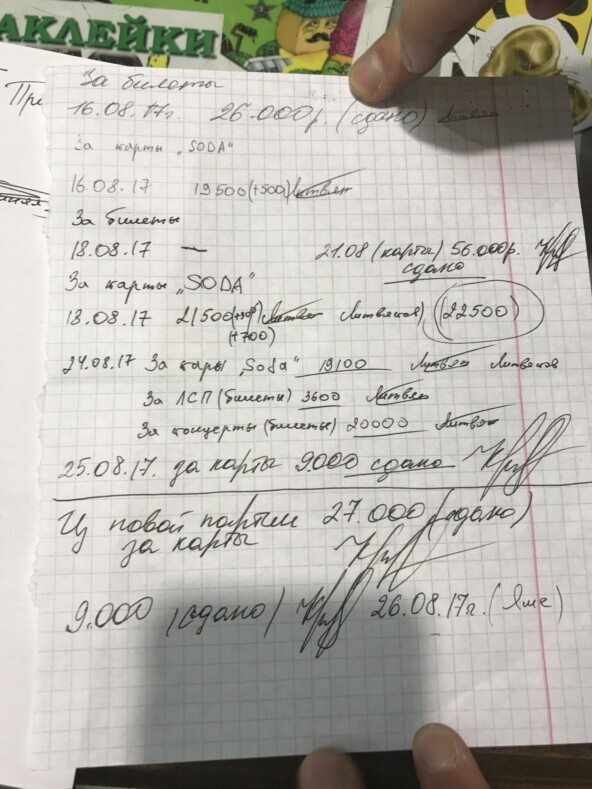 АКЛЕЙКИ
Пре
За билеты
16.08.17г. 26.000р. (сдано) Литвян
За карты „SODA"
16.08.17 19500(+500) Литвян
За билеты
18.08.17 — 21.08 (карты) 56.000р.
сдано
За карты „SODA"
18.08.17 21500(+300) Литвян Литвяков) (22500)
(+700)
24.08.17 За кары „Soda" 19100 Литвян Литвяков
За ЛСП (билеты) 3600 Литвян
За концерты (билеты) 20000 Литвян
25.08.17. за карты 9.000 сдано
Из новой партии 27.000 (сдано)
за карты
9.000 (сдано) 26.08.17г. (Яше)